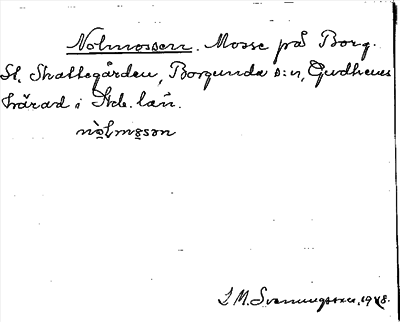 Nolmossen. Mosse på Borg.
St. Skattegården, Borgunda s:n, Gudhems
härad i Skb. län.
nòlmosən
S M. Svenungsson, 1928.